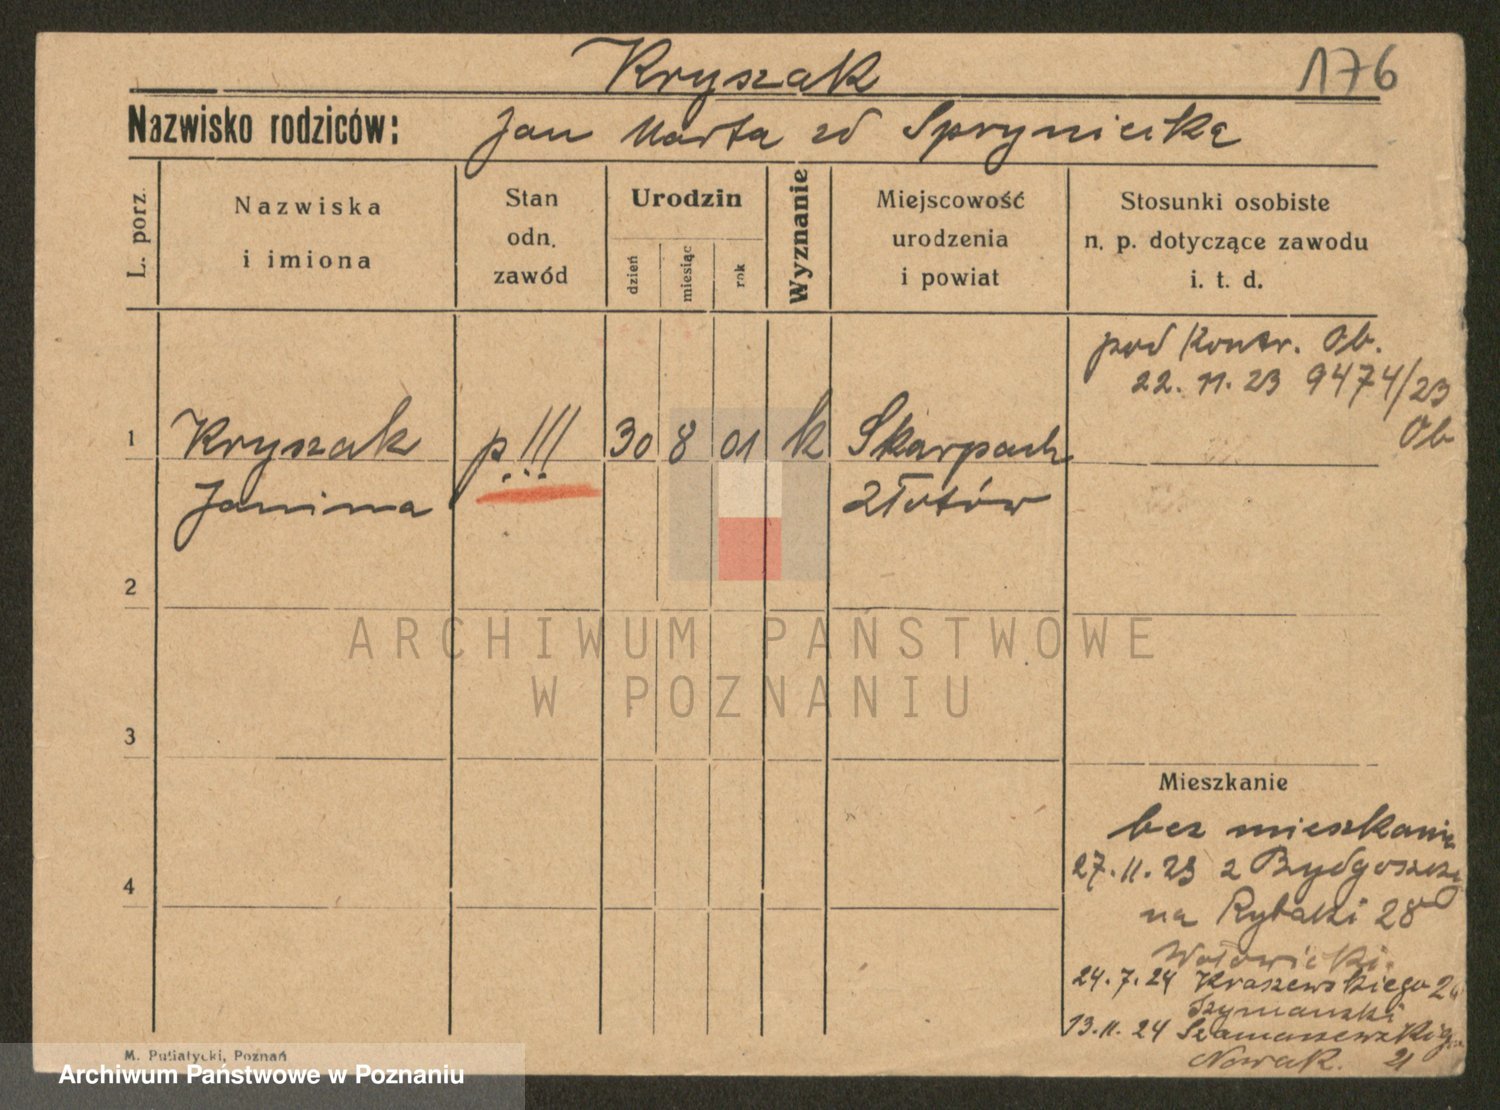 Kryszak
176
Nazwisko rodziców: Jan Marta zd Sprynicka
L. porz.
Nazwiska
i imiona
Stan
odn.
zawód
Urodzin
dzień
miesiąc
rok
Wyznanie
Miejscowość
urodzenia
i powiat
Stosunki osobiste
n. p. dotyczące zawodu
i. t. d.
pod Kontr. Ob.
22. 11. 23 9474/23
Ob
1 Kryszak p!!! 30 8 01 k
Janina Złotów
2
3
4
ARCHIWUM PAŃSTWOWE
W POZNANIU
Mieszkanie
bez mieszkania
27. 11. 23 z Bydgoszczy
na Rybaki 28
Wołowicki.
24. 7. 24 Kraszewskiego
Szymanski
13. 11. 24
Nowak. 21
M. Putiatycki, Poznań
Archiwum Państwowe w Poznaniu